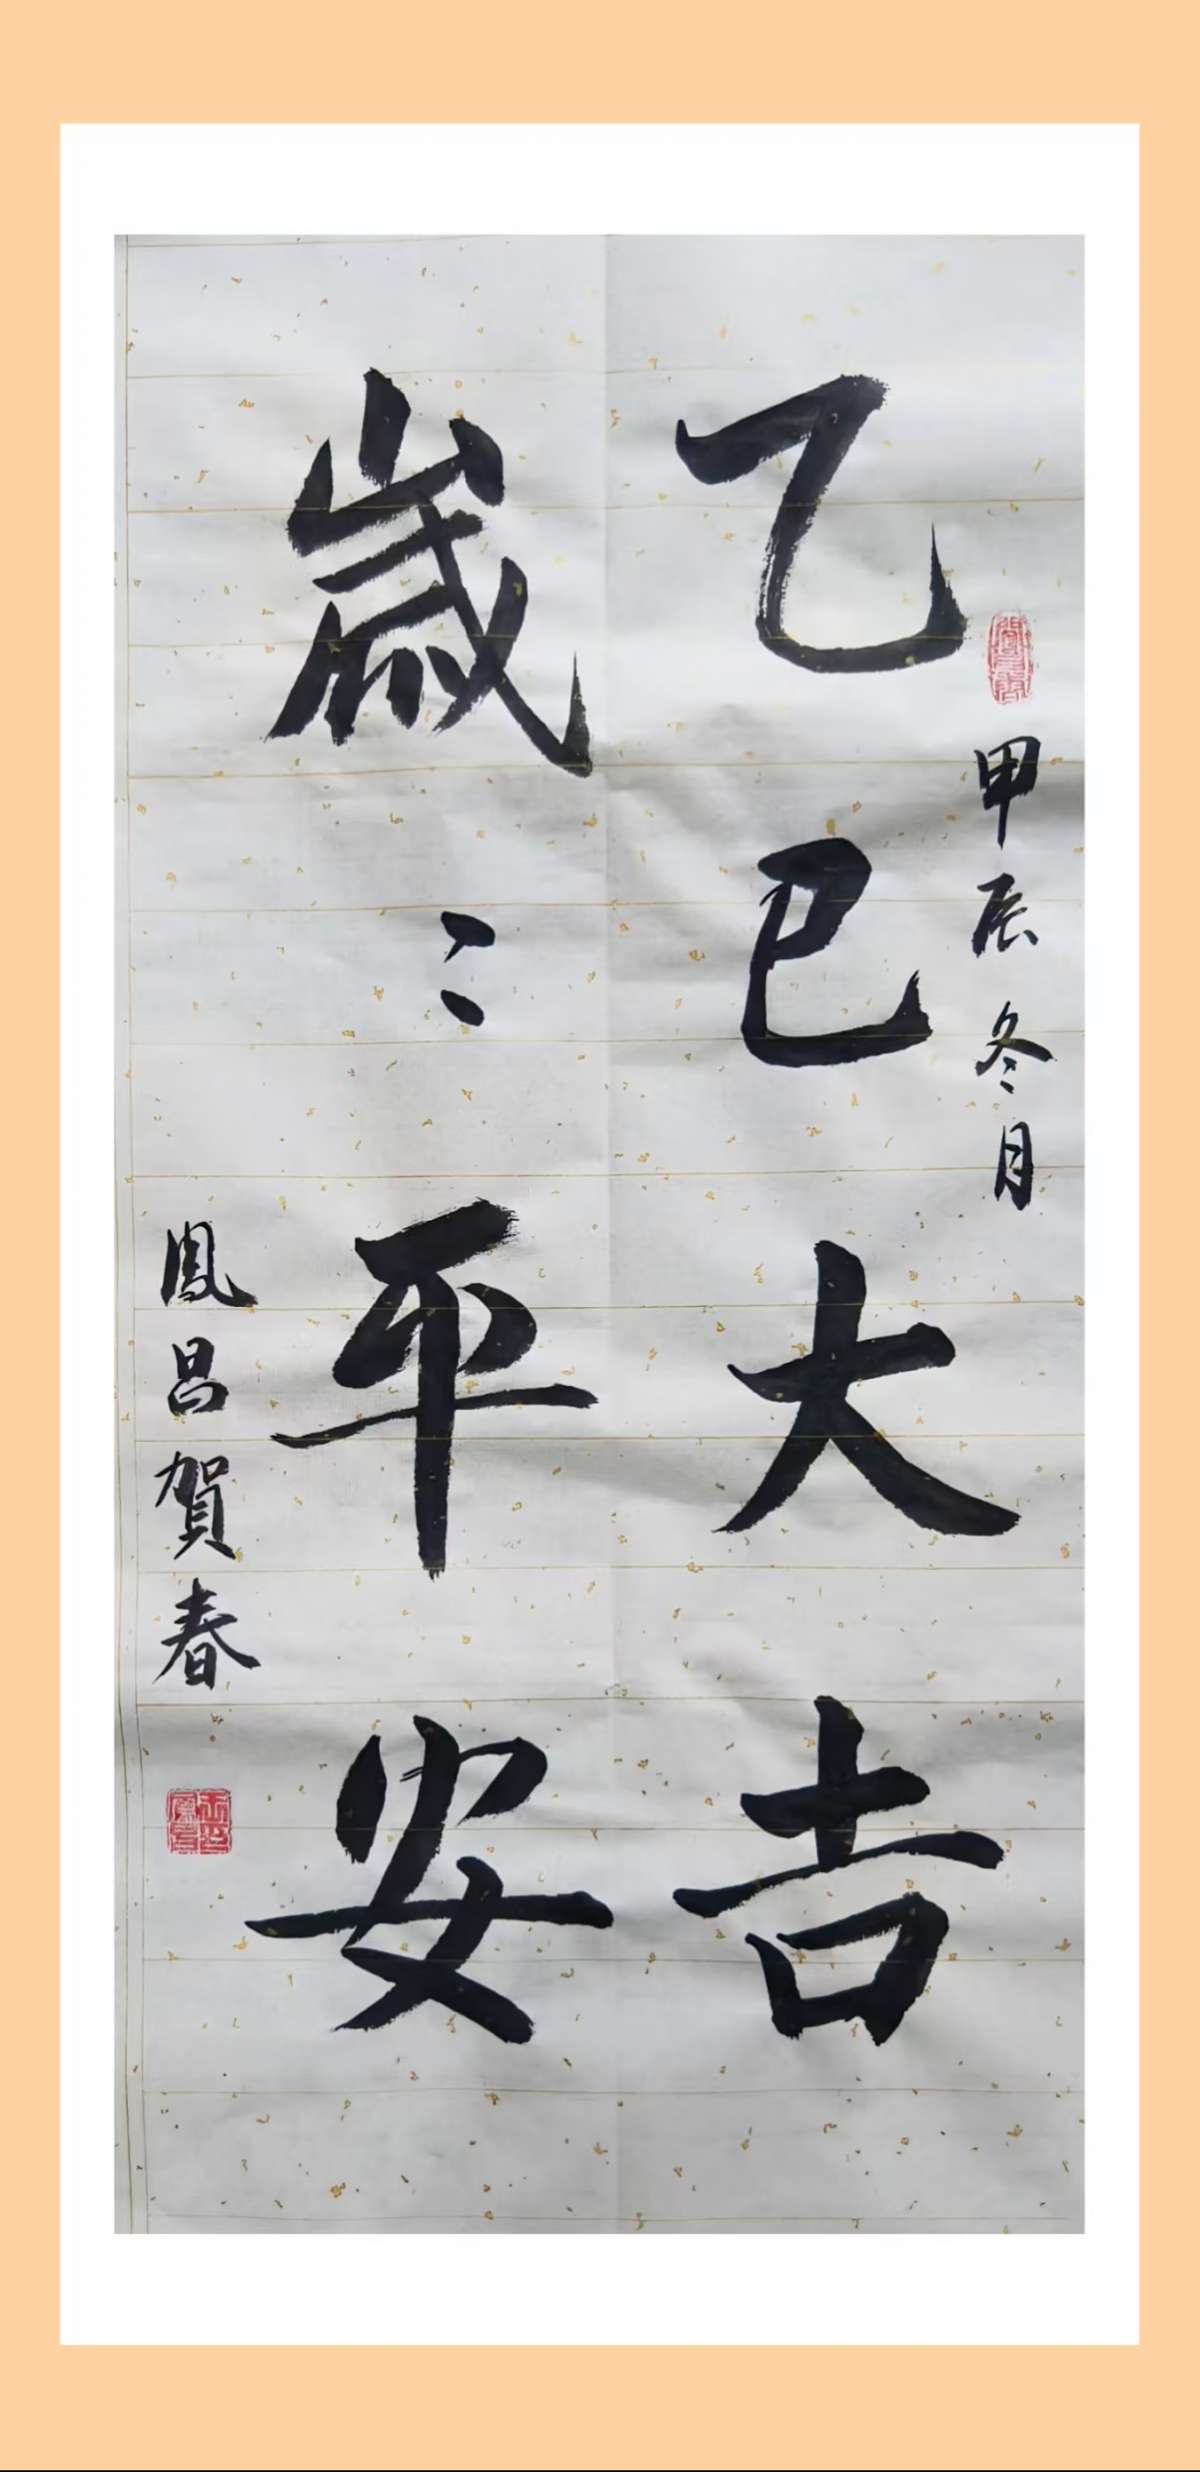 甲辰冬月
乙巳大吉
歲〻平安
鳳昌賀春